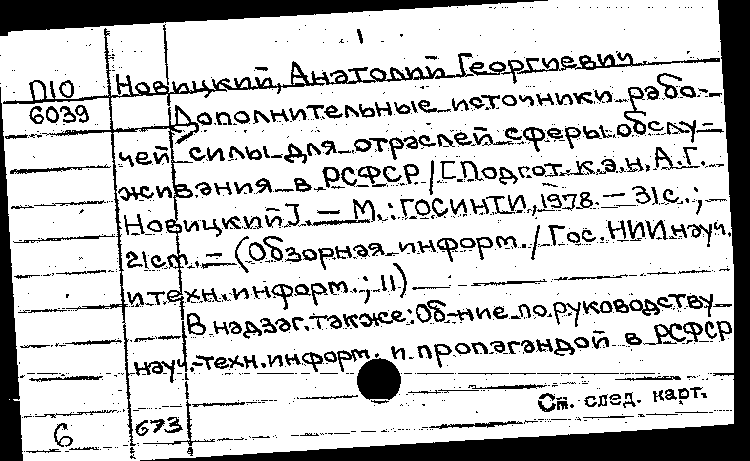 1
П10 Новицкий, Анатолий Георгиевич
6039 Дополнительные источники рабо-
чей силы для отраслей сферы обслу-
живания в РСФСР / [Подгот. к.э.н. А.Г.
Новицкий]. — М.: ГОСИНТИ, 1978. — 31с.;
21см. — (Обзорная информ. / Гос. НИИ науч.
и техн. информ.; 11)
В надзаг. также: Об-ние по руководству
науч.-техн. информ. и пропагандой в РСФСР
См. след. карт.
6 673